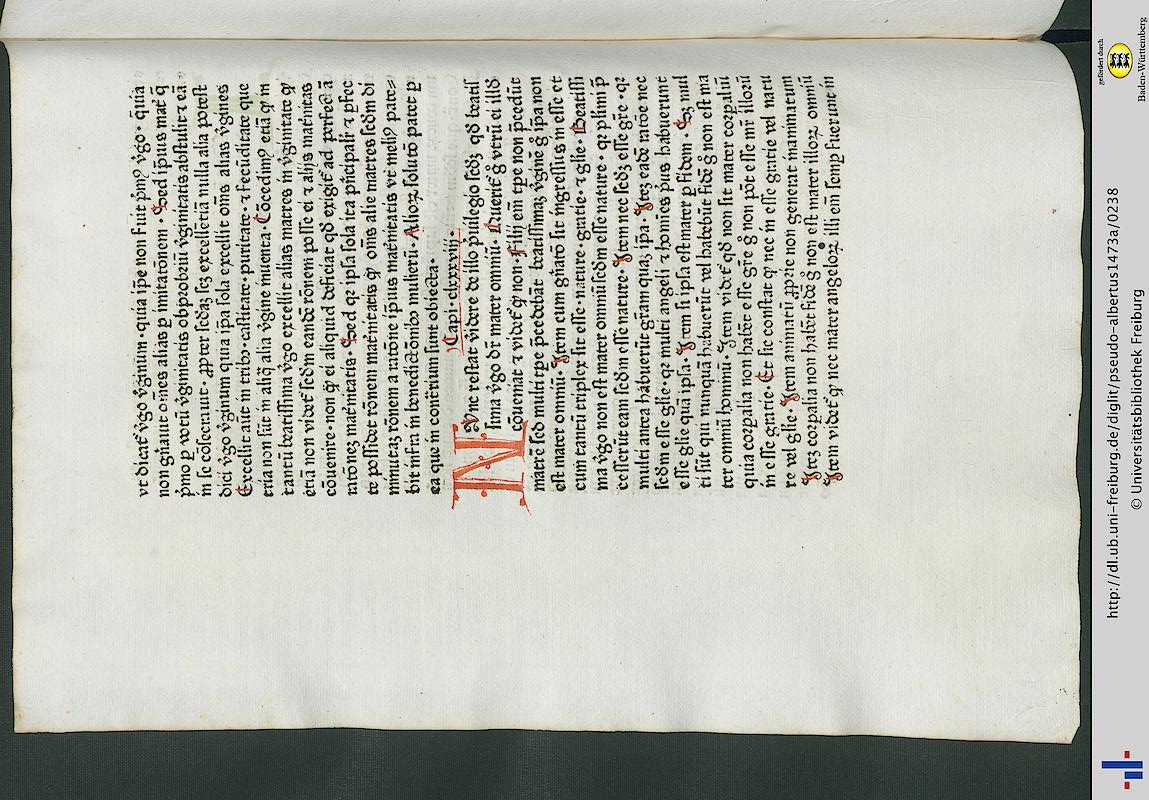 vt dicat᷒ v̾go v̾ginum · quia ip̄e non fuit p̾m⁹ v̾go · quia
non gn̄auit om̄es alias p imitatōnem · Sed ip̄ius mat̾ q̄
p̾mo p votū v̾ginitatis obprobriū v̾ginitatis abstulit ⁊ eā
in se cōsecrauit · ꝓpter secūdaꝫ sꝫ excellētiā nulla alia potest
dici v̾go v̾ginum quia ip̄a sola excellit om̄s alias v̾gines
Excellit aūt in tribꝰ · castitate · puritate · ⁊ fecūditate que
tria non sūt in aliq̄ alia v̾gine inuenta · Cōcedim⁹ etiā ꝙ in
tantū beatissima v̾go excellit alias matres in v̾ginitate ꝙ
etiā non videt᷒ scd̄m eandē rōnem posse ei ⁊ alijs mat̾nitas
cōuenire · non q̄ ei aliquid deficiat qd̄ exigit᷒ ad perfectā
ratōneꝫ mat̾nitatis · Sed qꝛ ipsa sola ita pn̄cipalit̾ ⁊ p̄fec
te possidet rōnem mat̾nitatis ꝙ om̄s alie matres scd̄m di
minutaꝫ rōnem a ratōne ip̄ius mat̾nitatis vt meli⁹ pate⸗
bit infra in benedictōnibꝰ mulierū · Alioꝝ solutō patet p
ea que in cont̾rium sunt obiecta ·
Capi · clxxxviij ·
Nvnc restat videre de illo p̾uilegio scd̄ꝫ qd̄ beatis
sima v̾go dr̄ mater omniū · Querit᷒ g̊ vtrū ei illd̄
cōueniat ⁊ videt᷒ ꝙ non · Filij em̄ tp̄e non p̄cedūt
matrē sed multi tp̄e p̄cedebāt beatissimaꝫ v̾ginē g̊ ip̄a non
est mater omniū · Item cum gn̄atō sit ingressus in esse et
cum tantū triplex sit esse · nature · gratie · ⁊ gl̄ie · Beatissi
ma v̾go non est mater omniū scd̄m esse nature · qꝛ plurimi p̄
cesserūt eam scd̄m esse nature · Item nec scd̄ꝫ esse gr̄e · qꝛ
multi antea habuerūt gr̄am quaꝫ ip̄a · Iteꝫ eadē ratōe nec
scd̄m esse gl̄ie · qꝛ multi angeli ⁊ homīes p̾us habuerunt
esse gl̄ie quā ipsa · Item si ipsa est mater p fidem · Sꝫ mul
ti sūt qui nunquā habuerūt vel habebūt fidē g̊ non est ma
ter omniū hominū · Item videt᷒ qd̄ non sit mater corpaliū
quia corpalia non habēt esse gr̄e g̊ non pōt esse mr̄ illorū
in esse gratie · Et sic constat ꝙ nec in esse gratie vel natu
re vel gl̄ie · Item animatū ꝓprie non generat inanimatum
Iteꝫ corpalia non habēt fidē g̊ non est mater illoꝝ omniū
Item videt᷒ ꝙ nec mater angeloꝝ · Illi em̄ semp fuerunt in
gefördert durch
Baden-Württemberg
http://dl.ub.uni-freiburg.de/diglit/pseudo-albertus1473a/0238
© Universitätsbibliothek Freiburg